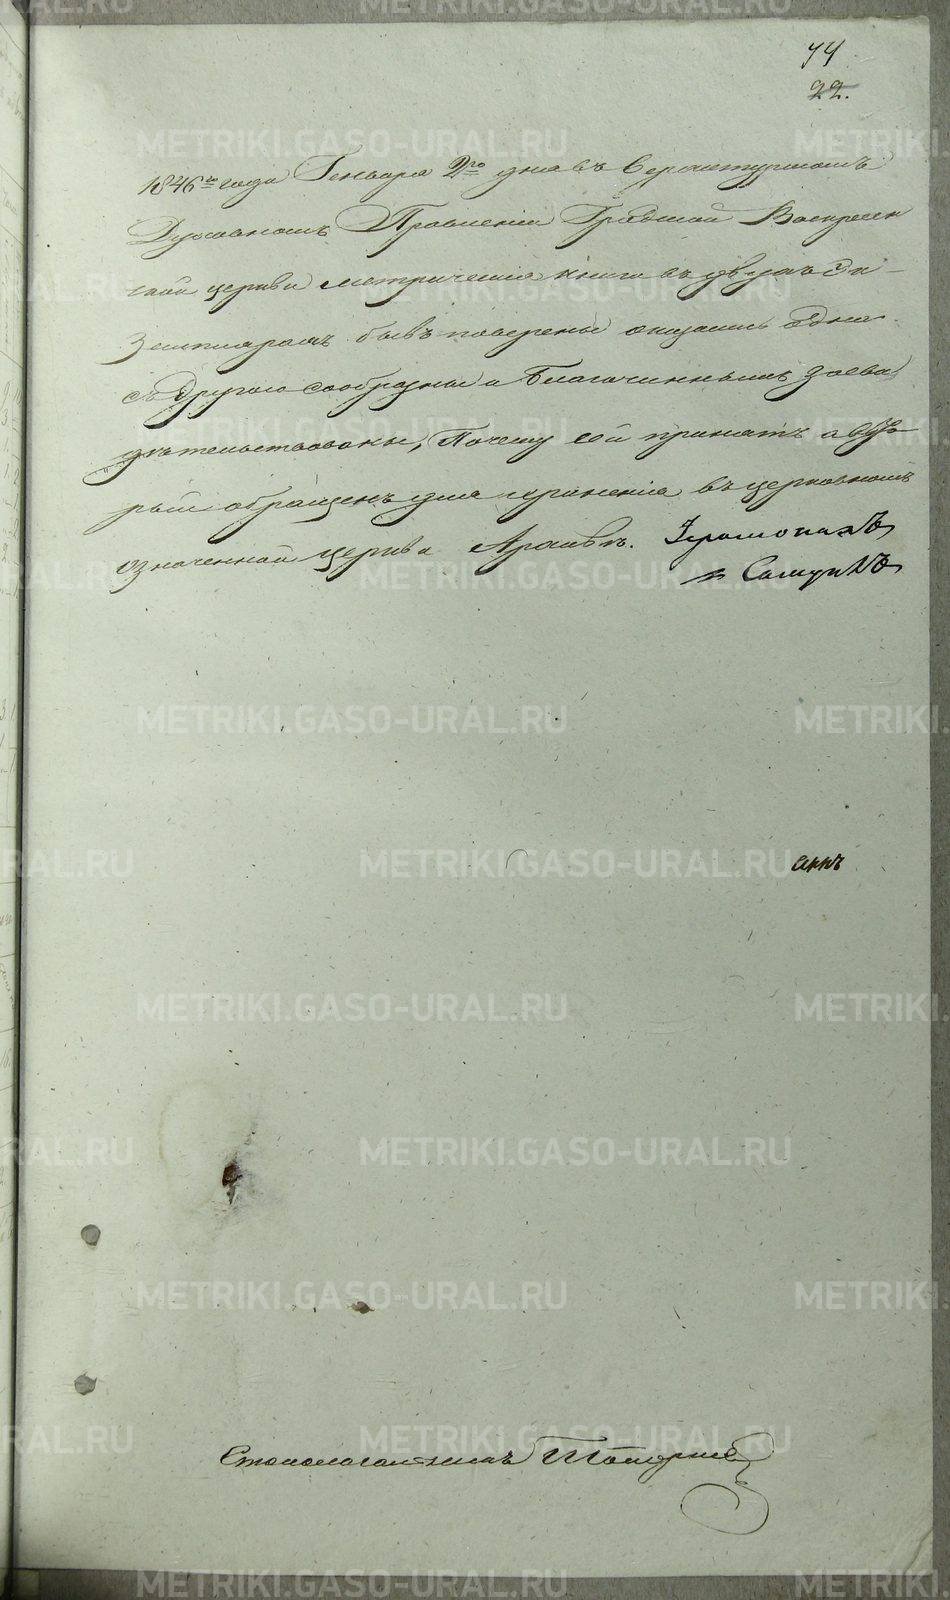 44
22.
1846го года Генваря 2го дня въ Верхотурскомъ
Духовномъ Правленіи Градской Воскресен
ской церкви метрическія книги въ двухъ Эк-
земплярахъ бывъ поверены оказались одна
съ другою сообразны и Благочиннымъ засви
дѣтельствованы, Почему сей принятъ а вто
рый обращенъ для храненія въ церковномъ
означенной церкви Архивѣ. Іеромонахъ
Столоначальникъ
METRIKI.GASO-URAL.RU